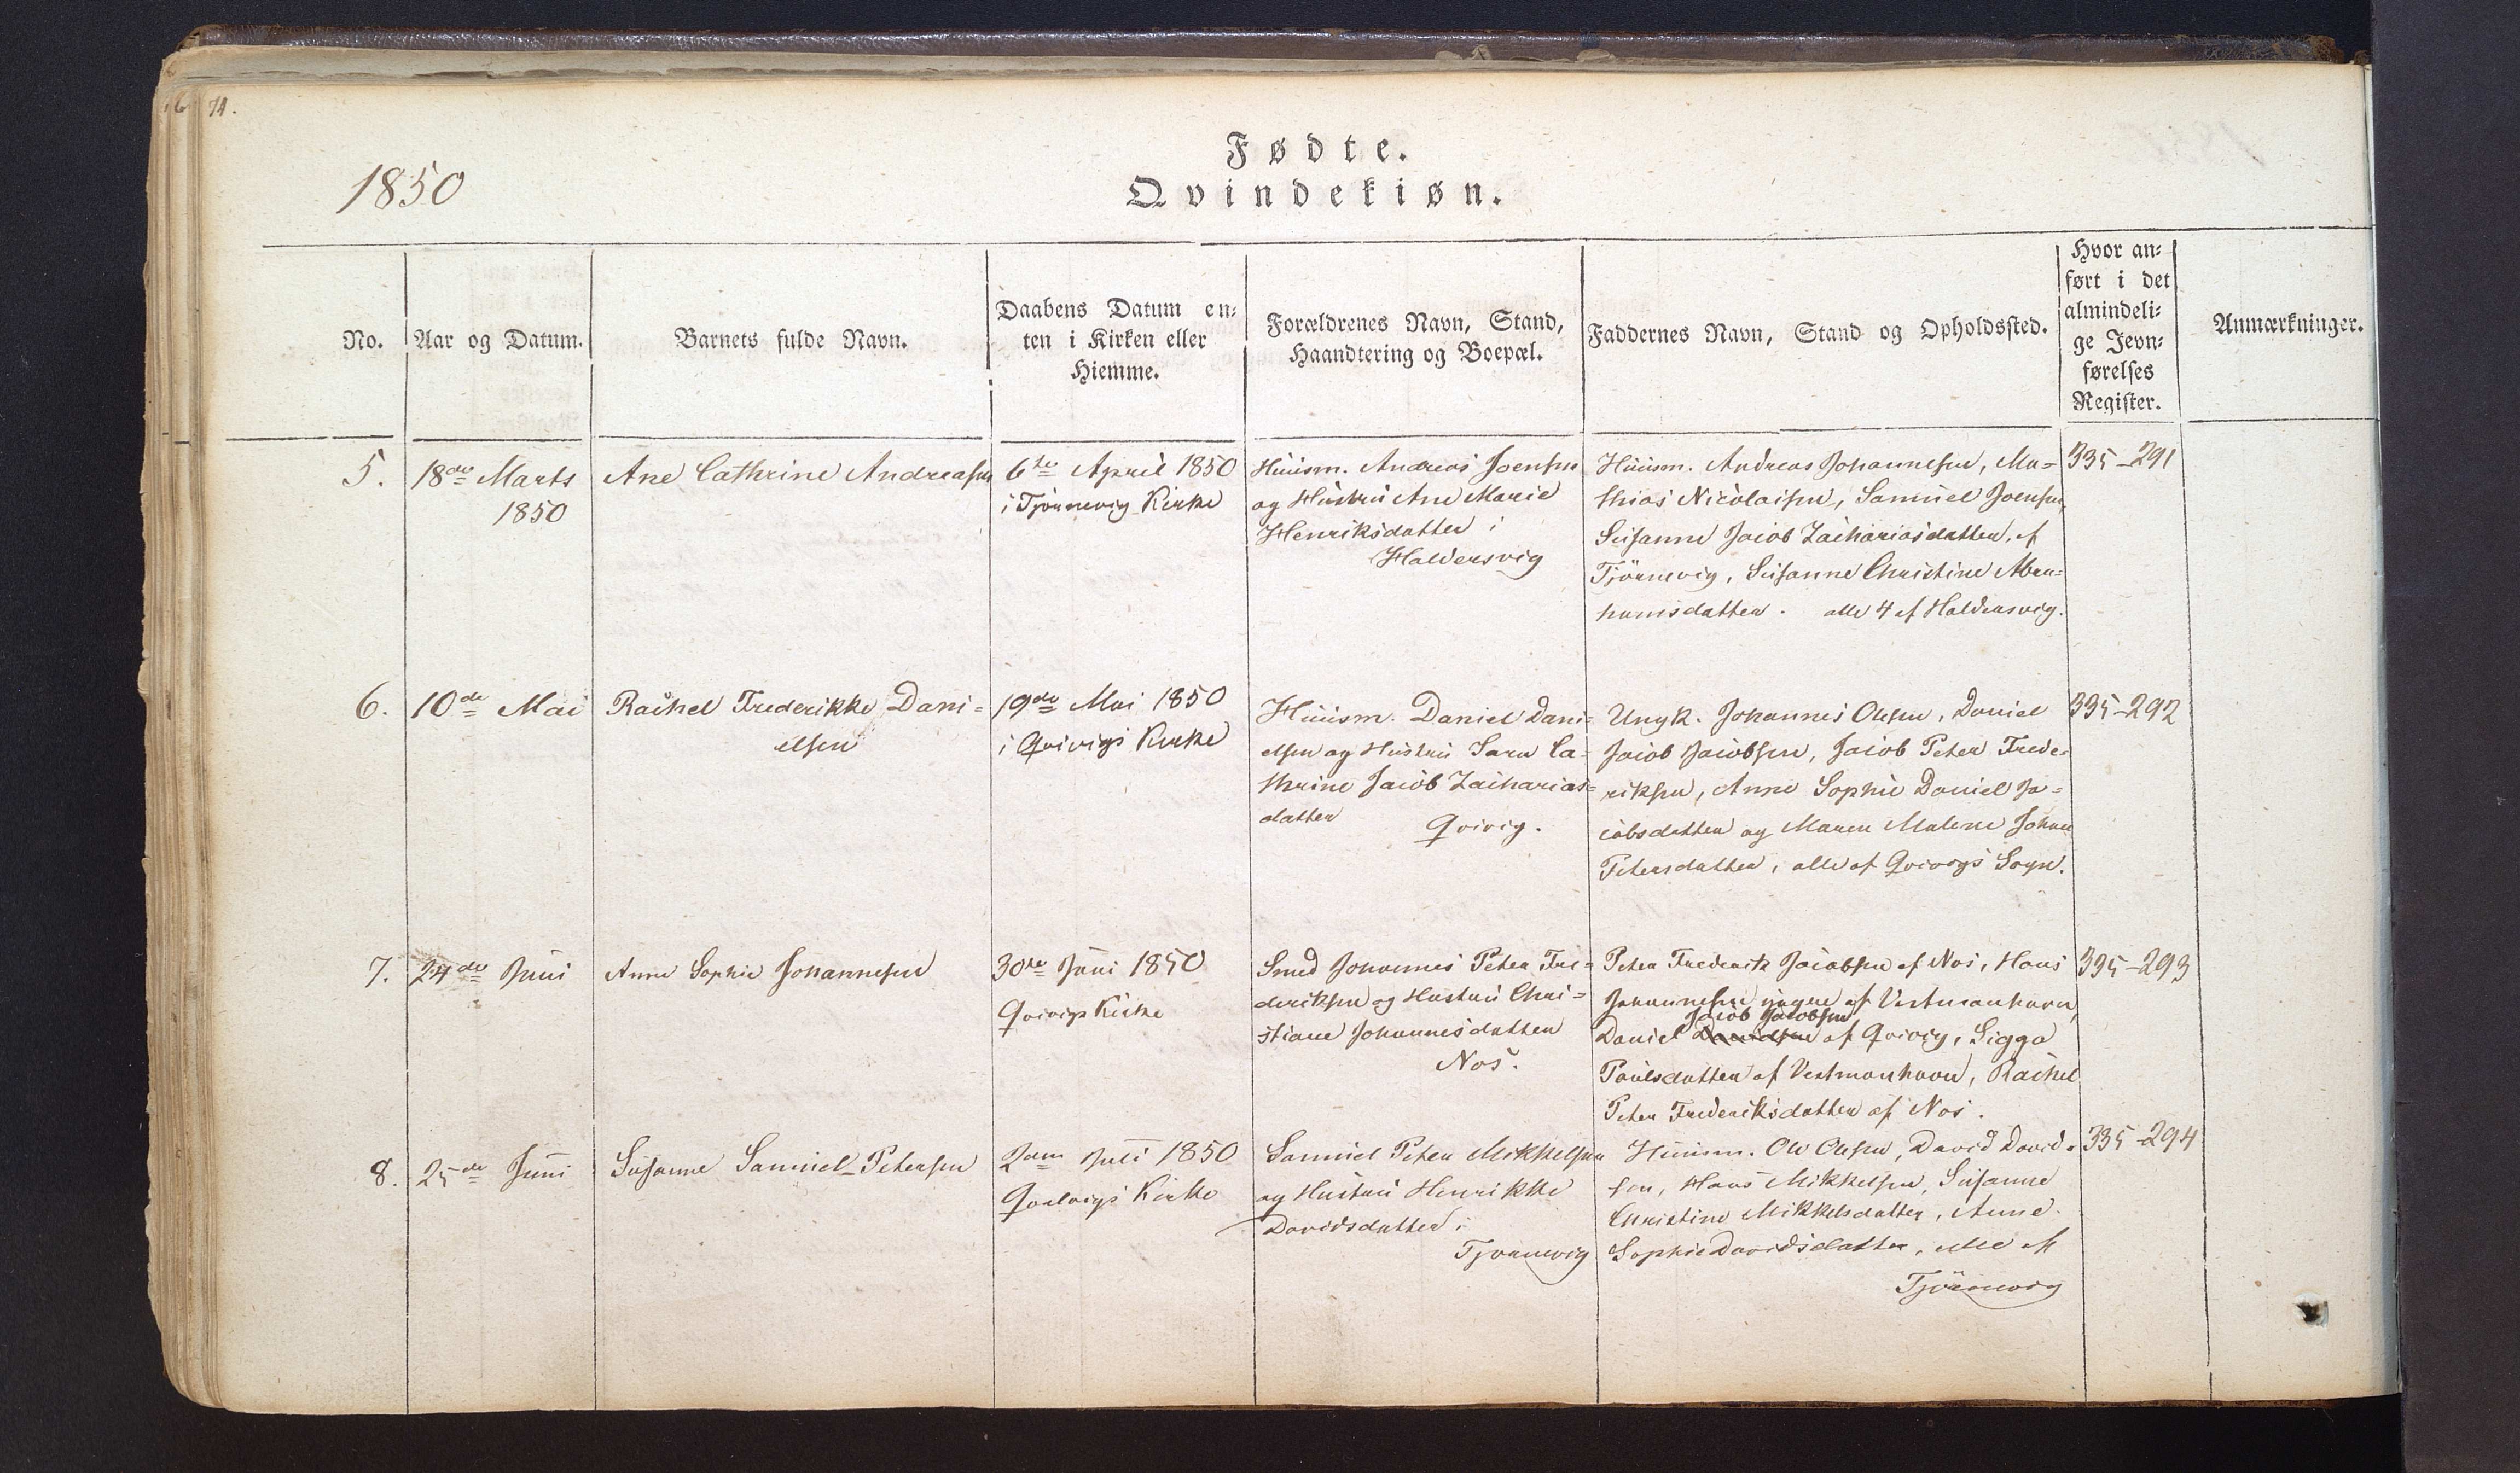 74.
1850
Fødte.
Qvindekiøn.
No.
Aar og Datum.
Barnets fulde Navn.
Daabens Datum en=
ten i Kirken eller
Hiemme.
Forældrenes Navn, Stand,
Haandtering og Boepæl.
Faddernes Navn, Stand og Opholdssted.
Hvor an=
ført i det
almindeli=
ge Jevn=
førelses
Register.
Anmærkninger.
5.
18de Marts
1850
Ane Cathrine Andreasen
6te April 1850
i Tjörnevig Kirke
Huusm. Andreas Joensen
og Hustru Ane Marie
Henriksdatter i
Haldersvig
Huusm. Andreas Johannesen, Ma=
thias Nicolaisen, Samuel Joensen,
Susanne Jacob Zachariasdatter, af
Tjörnevig, Susanne Christine Abra=
hamsdatter. alle 4 af Haldersvig.
335-291
6.
10de Mai
Rachel Frederikke Dani=
elsen
19de Mai 1850
i Qvivigs Kirke
Huusm. Daniel Dani=
elsen og Hustru Sara Ca=
thrine Jacob Zacharias=
datter
Qvivig.
Ungk. Johannes Olesen, Daniel
Jacob Jacobsen, Jacob Peter Frede=
riksen, Anne Sophie Daniel Ja=
cobsdatter og Maren Malene Johan
Petersdatter, alle af Qvivigs Sogn.
335-292
7.
24de Juni
Anne Sophie Johannesen
30te Juni 1850
Qvivigs Kirke
Smed Johannes Peter Fre=
deriksen og Hustru Chri=
stiane Johannesdatter
Nos.
Peter Frederik Jacobsen af Nos, Hans
Johannesen yngre af Vestmanhavn,
Jacob Jacobsen
Daniel Danielsen af Qvivig, Sigga
Poulsdatter af Vestmanhavn, Rachel
Peter Frederiksdatter af Nos.
335-293
8.
25de Juni
Susanne Samuel-Petersen
2den Juli 1850
Qvalvigs Kirke
Samuel Peter Mikkelsen
og Hustru Henrikke
Davidsdatter.
Tjörnevig
Huusm. Ole Olesen, David David=
sen, Hans Mikkelsen, Susanne
Christine Mikkelsdatter, Anne
Sophie Davidsdatter, alle af
Tjörnevig
335-294